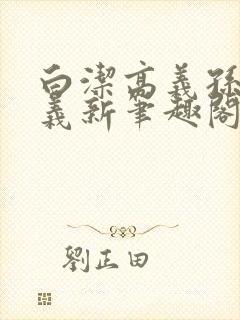 白潔高義孫
義新筆趣閣
劉正田